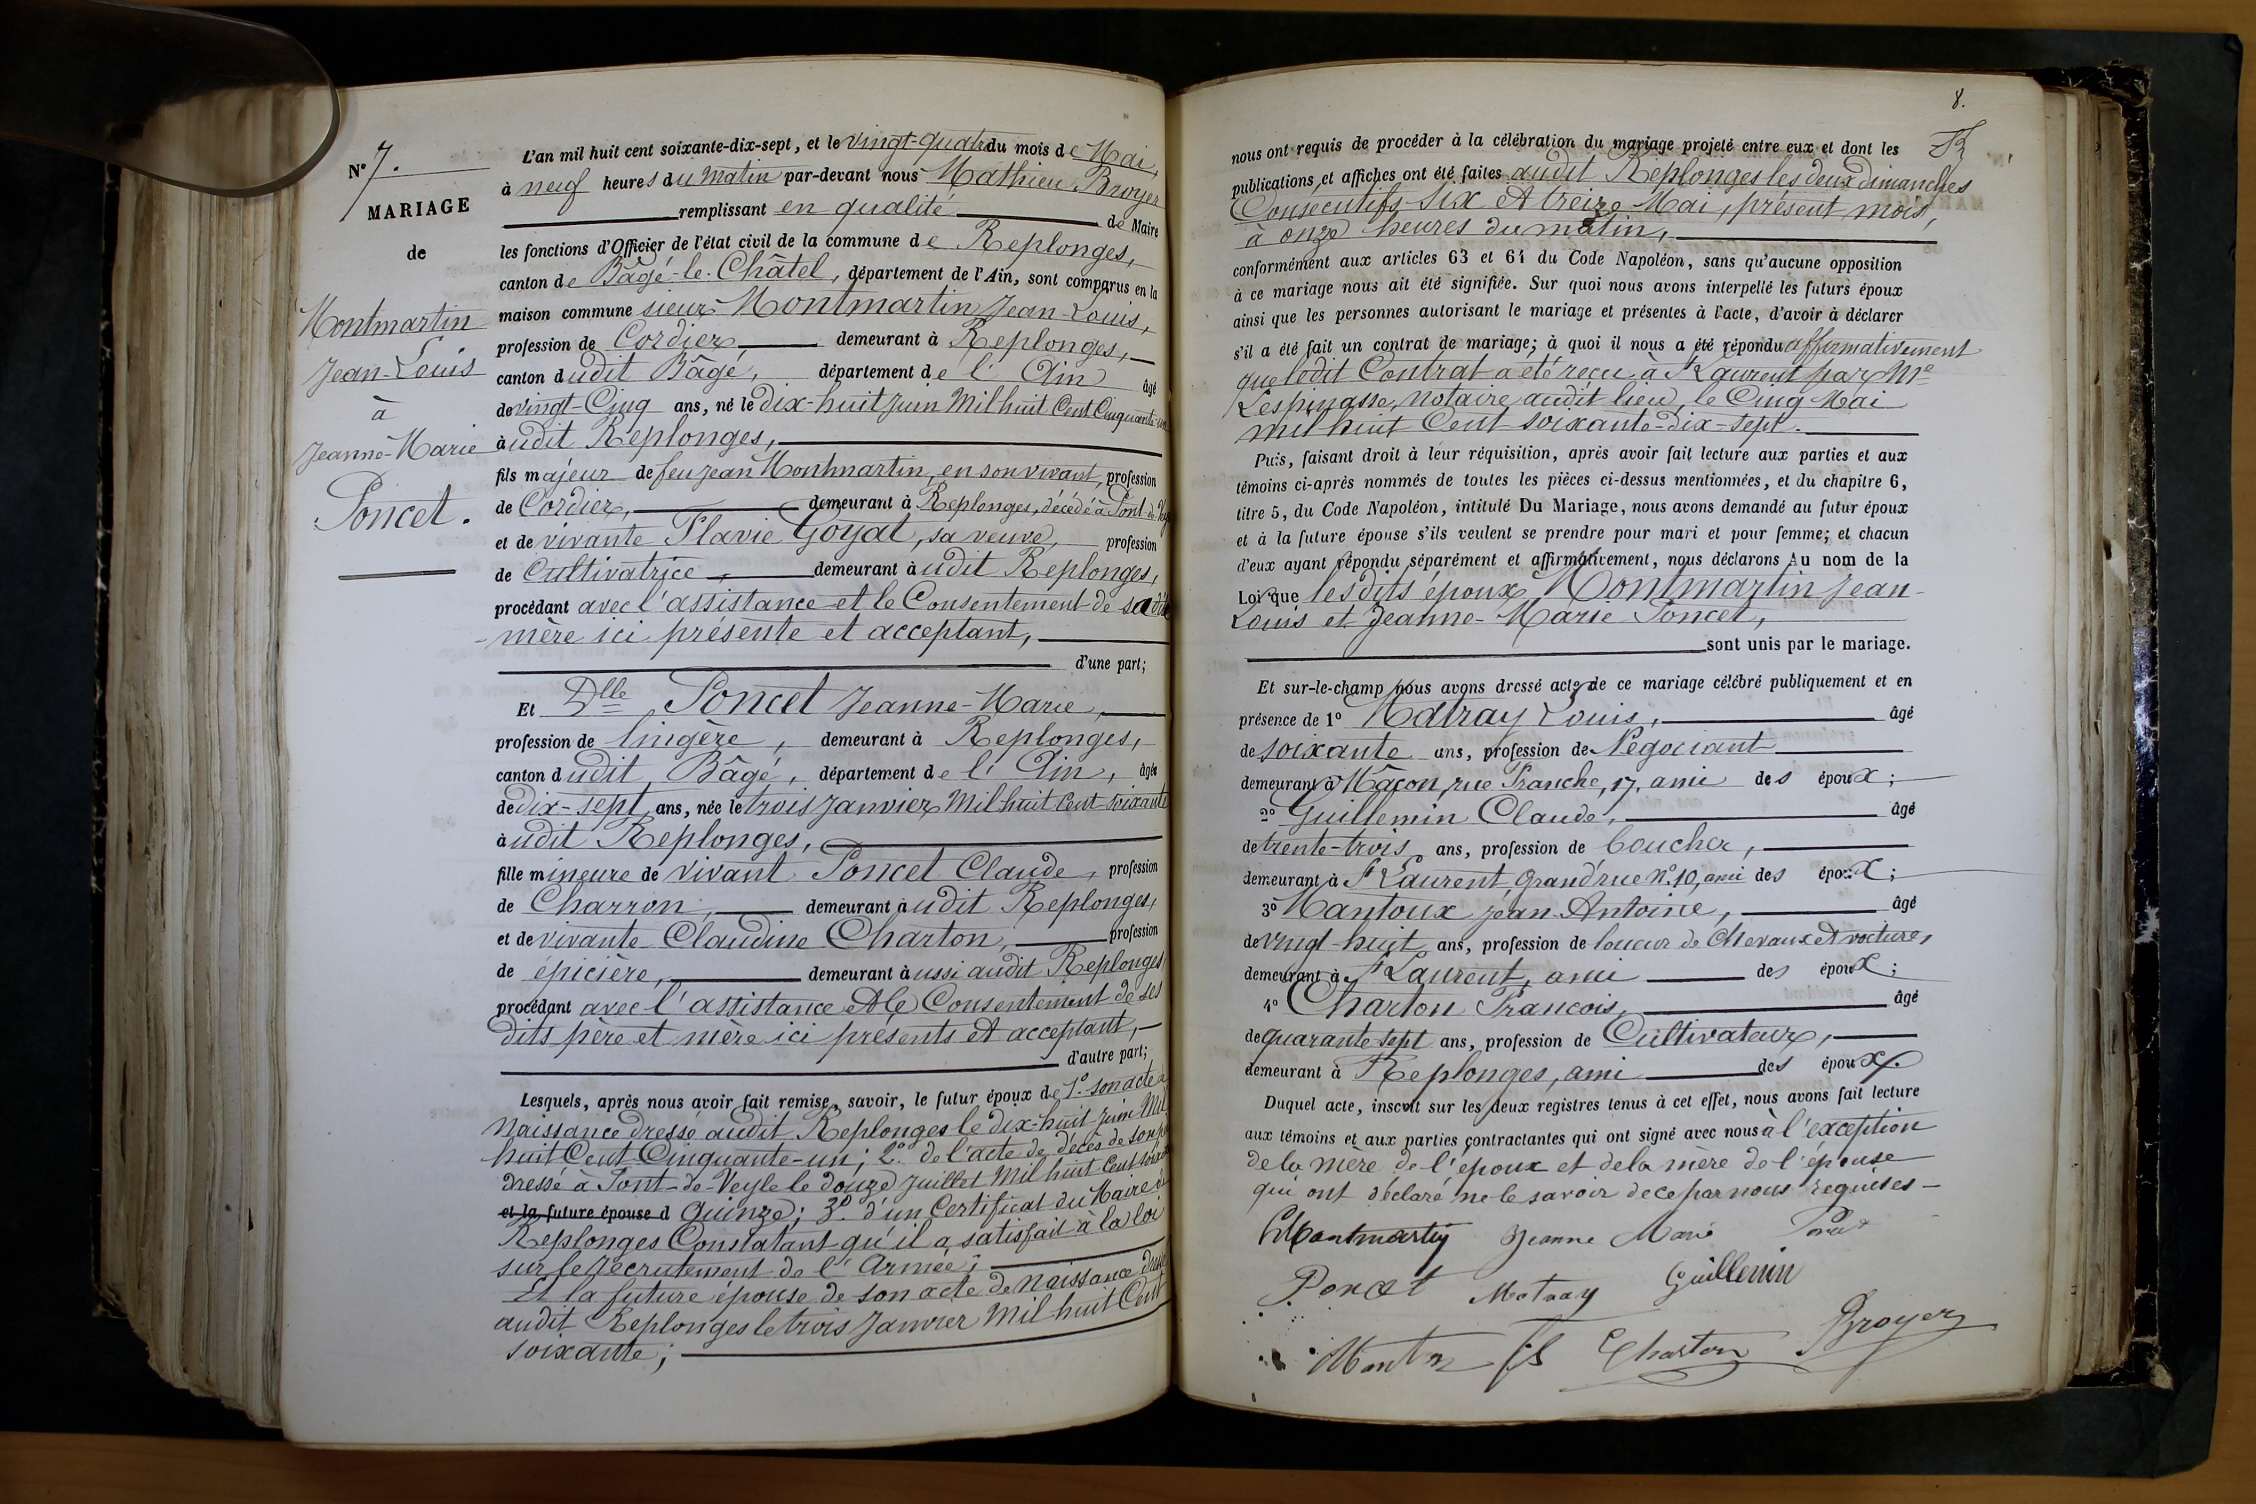 N° 7.
MARIAGE
de
Montmartin
Jean-Louis
à
Jeanne-Marie
Poncet.
L'an mil huit cent soixante-dix-sept, et le vingt-quatre du mois de Mai,
à neuf heures du matin par-devant nous Mathieu Broyer
remplissant en qualité de Maire
les fonctions d'Officier de l'état civil de la commune de Replonges,
canton de Bâgé-le-Châtel, département de l'Ain, sont comparus en la
maison commune sieur Montmartin Jean-Louis,
profession de Cordier, demeurant à Replonges,
canton dudit Bâgé, département de l'Ain âgé
de vingt-Cinq ans, né le dix-huit Juin Mil huit Cent Cinquante-un
audit Replonges,
fils majeur de feu Jean Montmartin, en son vivant, profession
de Cordier, demeurant à Replonges, décédé à Pont-de-Veyle
et de vivante Flavie Goyat, sa veuve, profession
de Cultivatrice, demeurant audit Replonges,
procédant avec l'assistance et le Consentement de sa dite
mère ici présente et acceptant,
d'une part;
Et Dlle Poncet Jeanne-Marie,
profession de lingère, demeurant à Replonges,
canton dudit Bâgé, département de l'Ain, âgée
de dix-sept ans, née le trois Janvier Mil huit Cent soixante
audit Replonges,
fille mineure de vivant Poncet Claude, profession
de Charron, demeurant audit Replonges,
et de vivante Claudine Charton, profession
de épicière, demeurant aussi audit Replonges
procédant avec l'assistance et le Consentement de ses
dits père et mère ici présents et acceptant,
d'autre part;
Lesquels, après nous avoir fait remise, savoir, le futur époux de 1° son acte de
Naissance dressé audit Replonges le dix-huit Juin Mil
huit Cent Cinquante-un; 2° de l'acte de décès de son père
dressé à Pont-de-Veyle le douze Juillet Mil huit Cent soixante
et la future épouse d quinze; 3° d'un Certificat du Maire de
Replonges Constatant qu'il a satisfait à la loi
sur le recrutement de l'Armée;
Et la future épouse de son acte de Naissance dressé
audit Replonges le trois Janvier Mil huit Cent
soixante;
8.
nous ont requis de procéder à la célébration du mariage projeté entre eux et dont les
publications et affiches ont été faites audit Replonges les deux dimanches
Consécutifs six et treize Mai, présent mois,
à onze heures du matin,
conformément aux articles 63 et 64 du Code Napoléon, sans qu'aucune opposition
à ce mariage nous ait été signifiée. Sur quoi nous avons interpellé les futurs époux
ainsi que les personnes autorisant le mariage et présentes à l'acte, d'avoir à déclarer
s'il a été fait un contrat de mariage; à quoi il nous a été répondu affirmativement
que ledit Contrat a été reçu à St Laurent par Me
Lespinasse, Notaire audit lieu, le Cinq Mai
mil huit Cent soixante-dix-sept.
Puis, faisant droit à leur réquisition, après avoir fait lecture aux parties et aux
témoins ci-après nommés de toutes les pièces ci-dessus mentionnées, et du chapitre 6,
titre 5, du Code Napoléon, intitulé Du Mariage, nous avons demandé au futur époux
et à la future épouse s'ils veulent se prendre pour mari et pour femme; et chacun
d'eux ayant répondu séparément et affirmativement, nous déclarons Au nom de la
Loi que lesdits époux Montmartin Jean-
Louis et Jeanne-Marie Poncet,
sont unis par le mariage.
Et sur-le-champ nous avons dressé acte de ce mariage célébré publiquement et en
présence de 1° Matray Louis, âgé
de soixante ans, profession de Négociant
demeurant à Mâcon, rue Franche, 17, ami des époux;
2° Guillemin Claude, âgé
de trente-trois ans, profession de boucher,
demeurant à St Laurent, grand'rue N° 10, ami des époux;
3° Mantoux Jean-Antoine, âgé
de vingt-huit ans, profession de loueur de Chevaux et voiture,
demeurant à St Laurent, ami des époux;
4° Charton François, âgé
de quarante sept ans, profession de Cultivateur,
demeurant à Replonges, ami des époux.
Duquel acte, inscrit sur les deux registres tenus à cet effet, nous avons fait lecture
aux témoins et aux parties contractantes qui ont signé avec nous à l'exception
de la mère de l'époux et de la mère de l'épouse
qui ont déclaré ne le savoir de ce par nous requises
Montmartin Jeanne Marie Poncet
Poncet Matray Guillemin
fs Charton Broyer